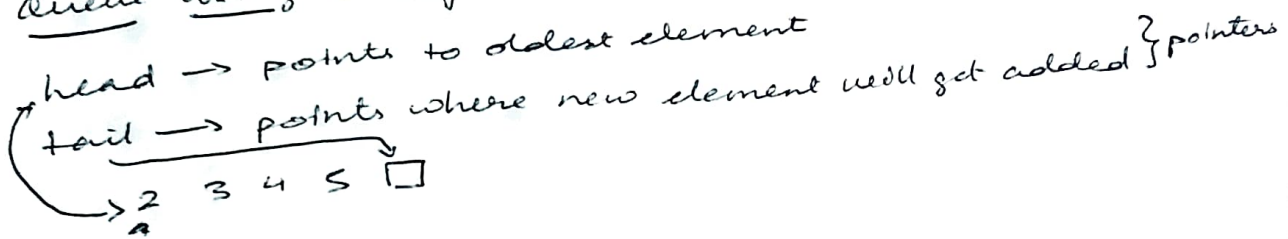 Queue
head → points to oldest element
tail → points where new element will get added } pointers
2 3 4 5 □